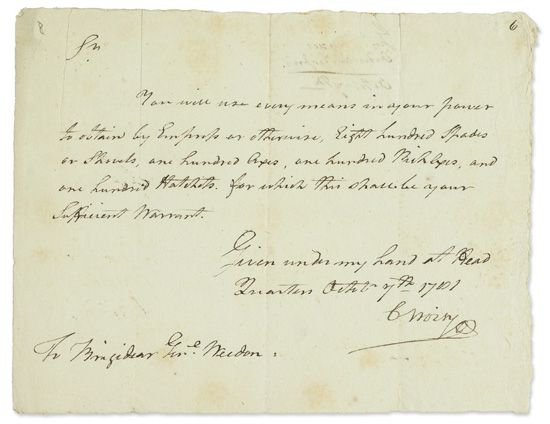 8
6
Sir
You will use every means in your power
to obtain by Empress or otherwise, Eight hundred Spades
or Shovels, one hundred Axes, one hundred Pick Axes, and
one hundred Hatchets. for which this shall be your
Sufficient Warrant.
Given under my hand at Head
Quarters Octob 7th 1781
To Brigidear Genl. Weedon.